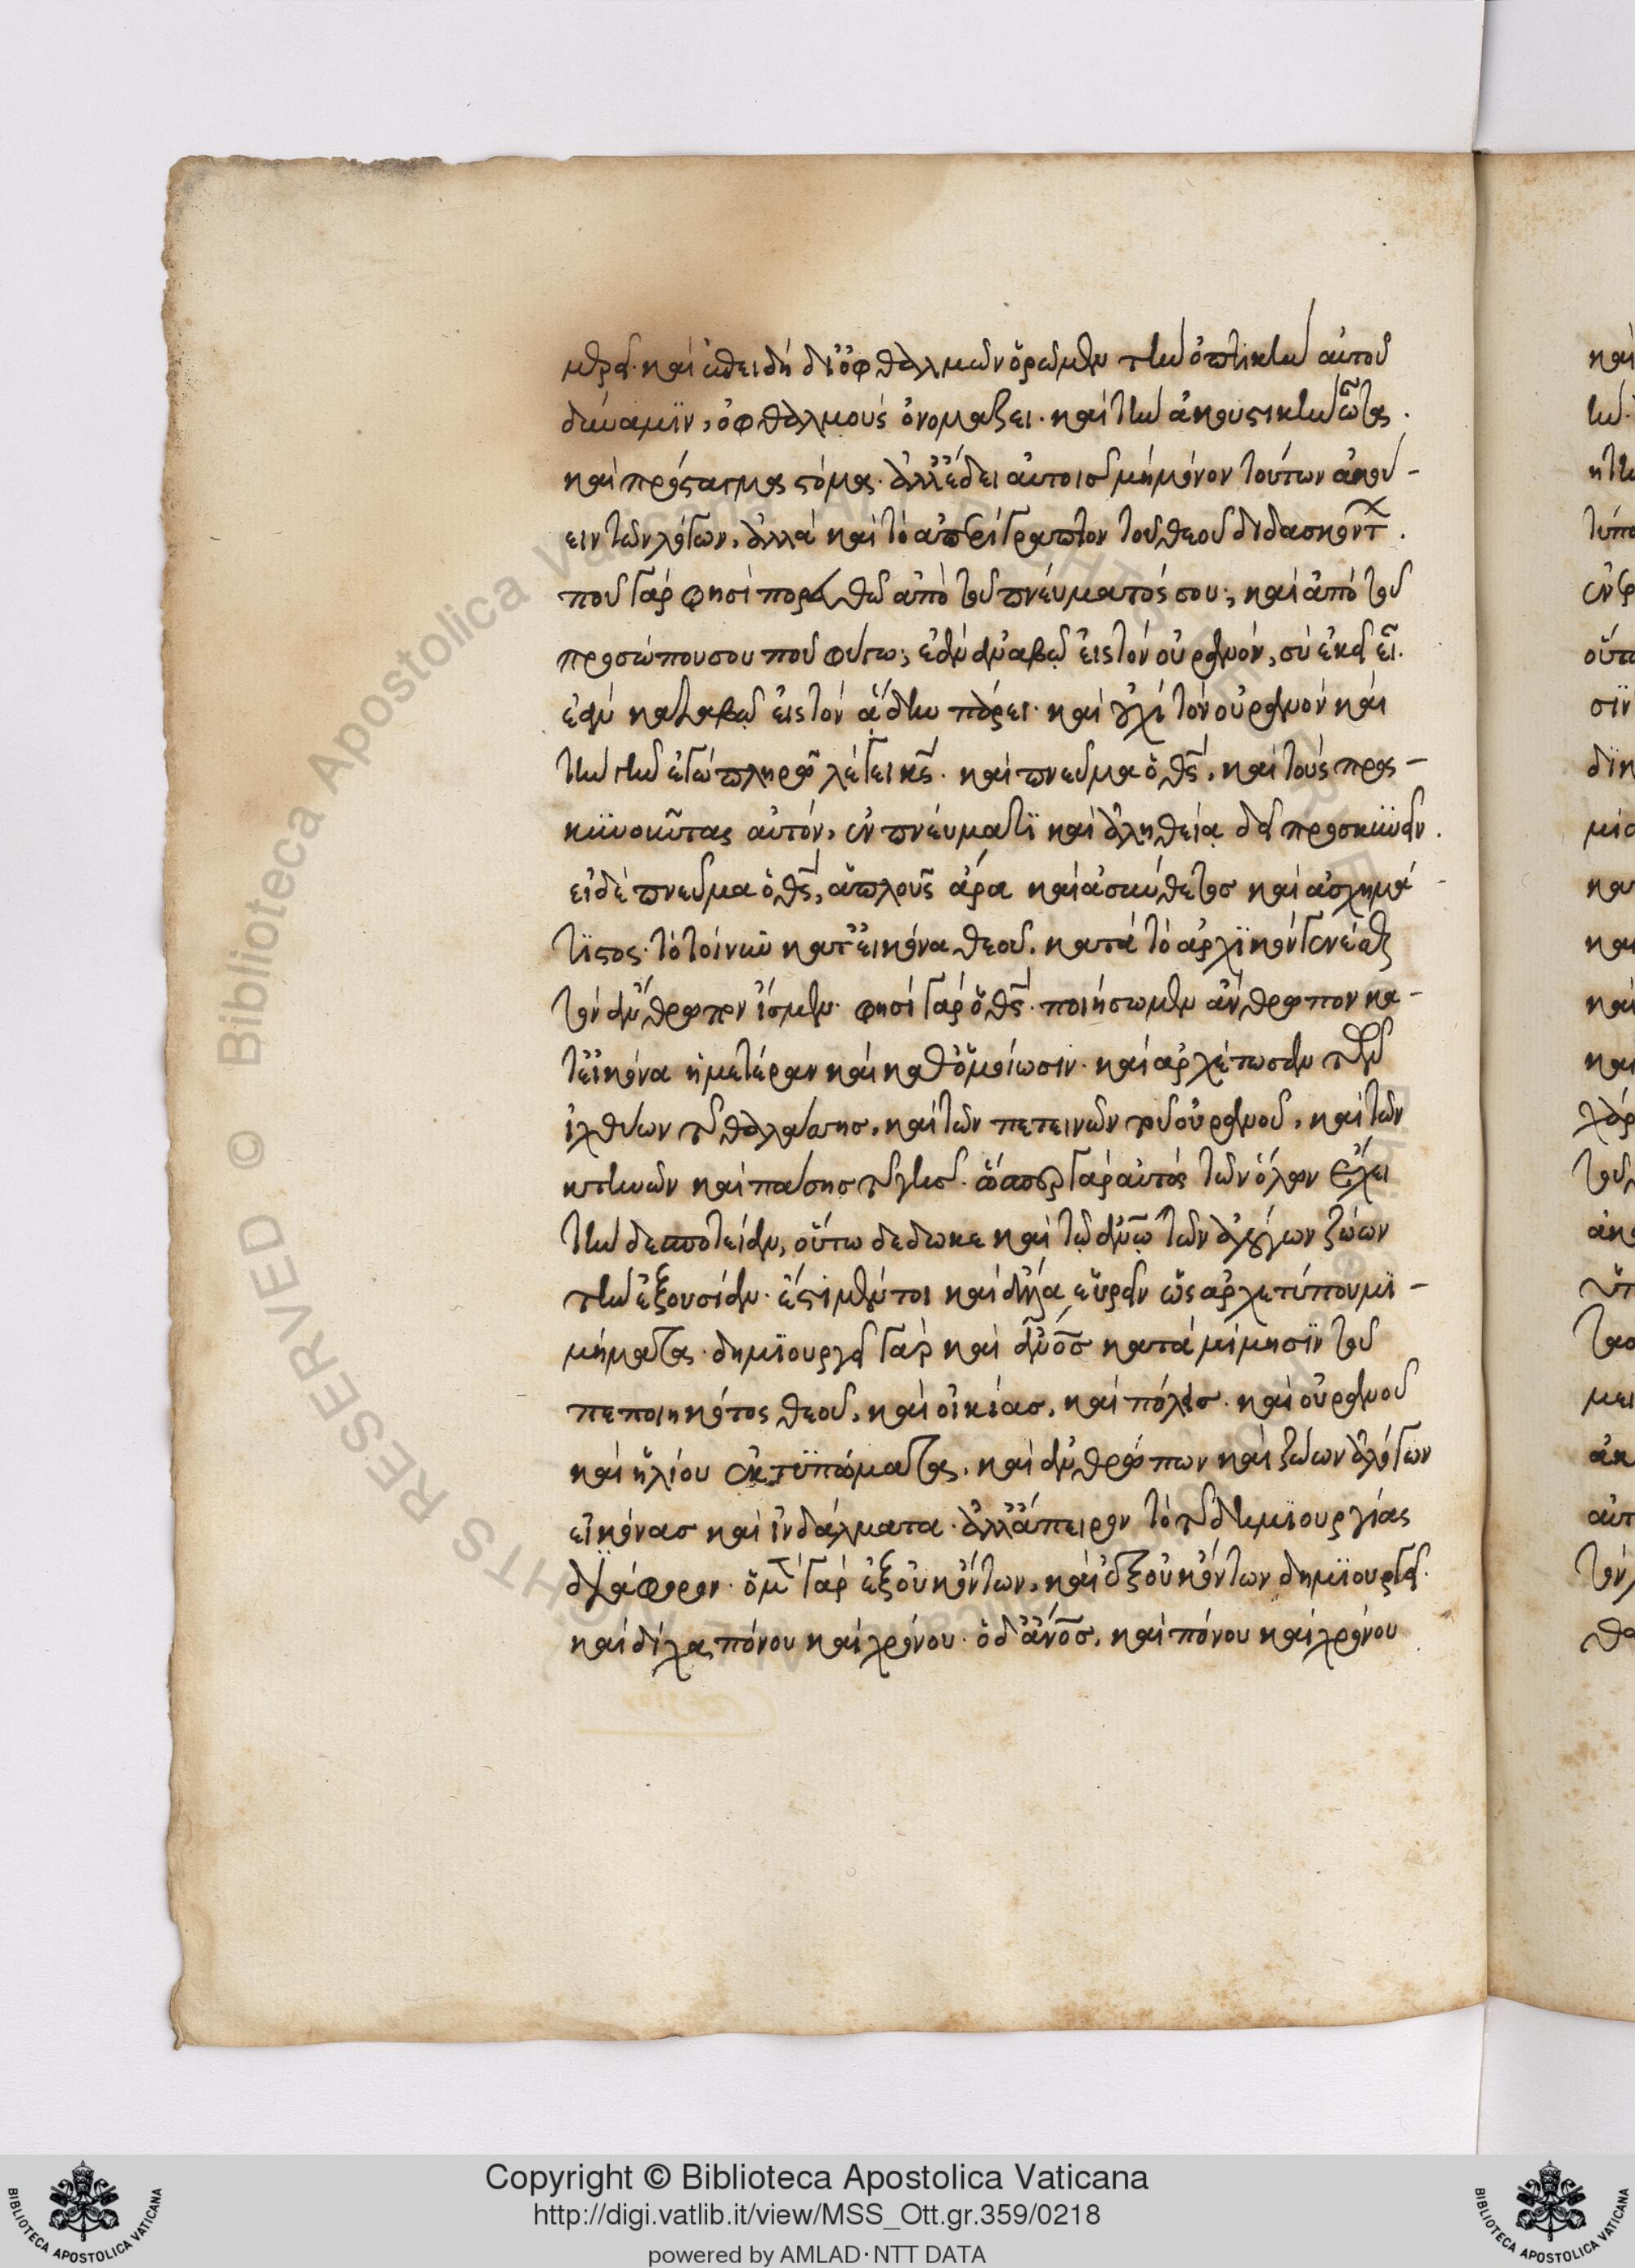 μέρα· καὶ ἐπειδὴ δι' ὀφθαλμῶν ὁρῶμεν τὴν ὀπτικὴν αὐτοῦ
δύναμϊν, ὀφθαλμοὺς ὀνομάζει· καὶ τὴν ἀκουστικὴν ὦτα.
καὶ πρόσταγμα στόμα· ἀλλ' ἔδει αὐτοὺς μὴ μόνον τούτων ἀκού-
ειν τῶν λόγων, ἀλλὰ καὶ τὸ ἀπερίγραπτον τοῦ θεοῦ διδασκόντων.
ποῦ γάρ φησι πορευθῶ ἀπὸ τοῦ πνεύματός σου; καὶ ἀπὸ τοῦ
προσώπου σου ποῦ φύγω; ἐὰν ἀναβῶ εἰς τὸν οὐρανόν, σὺ ἐκεῖ εἶ.
ἐὰν καταβῶ εἰς τὸν ᾅδην πάρει· καὶ οὐχὶ τὸν οὐρανὸν καὶ
τὴν γῆν ἐγὼ πληρῶ λέγει κς̅· καὶ πνεῦμα ὁ θς̅, καὶ τοὺς προσ-
κϋνοῦντας αὐτόν, ἐν πνεύματϊ καὶ ἀληθείᾳ δεῖ προσκϋνεῖν.
εἰ δὲ πνεῦμα ὁ θς̅, ἁπλοῦς ἄρα καὶ ἀσύνθετος καὶ ἀσχημά-
τϊστος· τὸ τοίνυν κατ' εἰκόνα θεοῦ, κατὰ τὸ ἀρχϊκὸν γενέσθαι
τὸν ἄνθρωπον ἴσμεν· φησὶ γὰρ ὁ θς̅· ποιήσωμεν ἄνθρωπον κα-
τ' εἰκόνα ἡμετέραν καὶ καθ' ὁμοίωσιν· καὶ ἀρχέτωσαν τῶν
ἰχθύων τῆς θαλάσσης, καὶ τῶν πετεινῶν τοῦ οὐρανοῦ, καὶ τῶν
κτηνῶν καὶ πάσης τῆς γῆς· ὥσπερ γὰρ αὐτὸς τῶν ὅλων ἔχει
τὴν δεσποτείαν, οὕτω δέδωκε καὶ τῷ ἀν̅ω̅ τῶν ἀλόγων ζώων
τὴν ἐξουσίαν· ἔστι μέντοι καὶ ἄλλα εὑρεῖν ὡς ἀρχετύπου μϊ-
μήματα· δημϊουργεῖ γὰρ καὶ ἀν̅ο̅ς κατὰ μίμησϊν τοῦ
πεποιηκότος θεοῦ, καὶ οἰκίας, καὶ πόλεις· καὶ οὐρανοῦ
καὶ ἡλίου ἐκτϋπώματα, καὶ ἀνθρώπων καὶ ζώων ἀλόγων
εἰκόνας καὶ ἰνδάλματα· ἀλλ' ἄπειρον τὸ τῆς δημϊουργίας
διάφορον· ὁ μὲν γὰρ ἐξ οὐκ ὄντων, καὶ ἐξ οὐκ ὄντων δημϊουργεῖ.
καὶ δίχα πόνου καὶ χρόνου· ὁ δ' ἀν̅ο̅ς, καὶ πόνου καὶ χρόνου
Copyright © Biblioteca Apostolica Vaticana
http://digi.vatlib.it/view/MSS_Ott.gr.359/0218
powered by AMLAD·NTT DATA